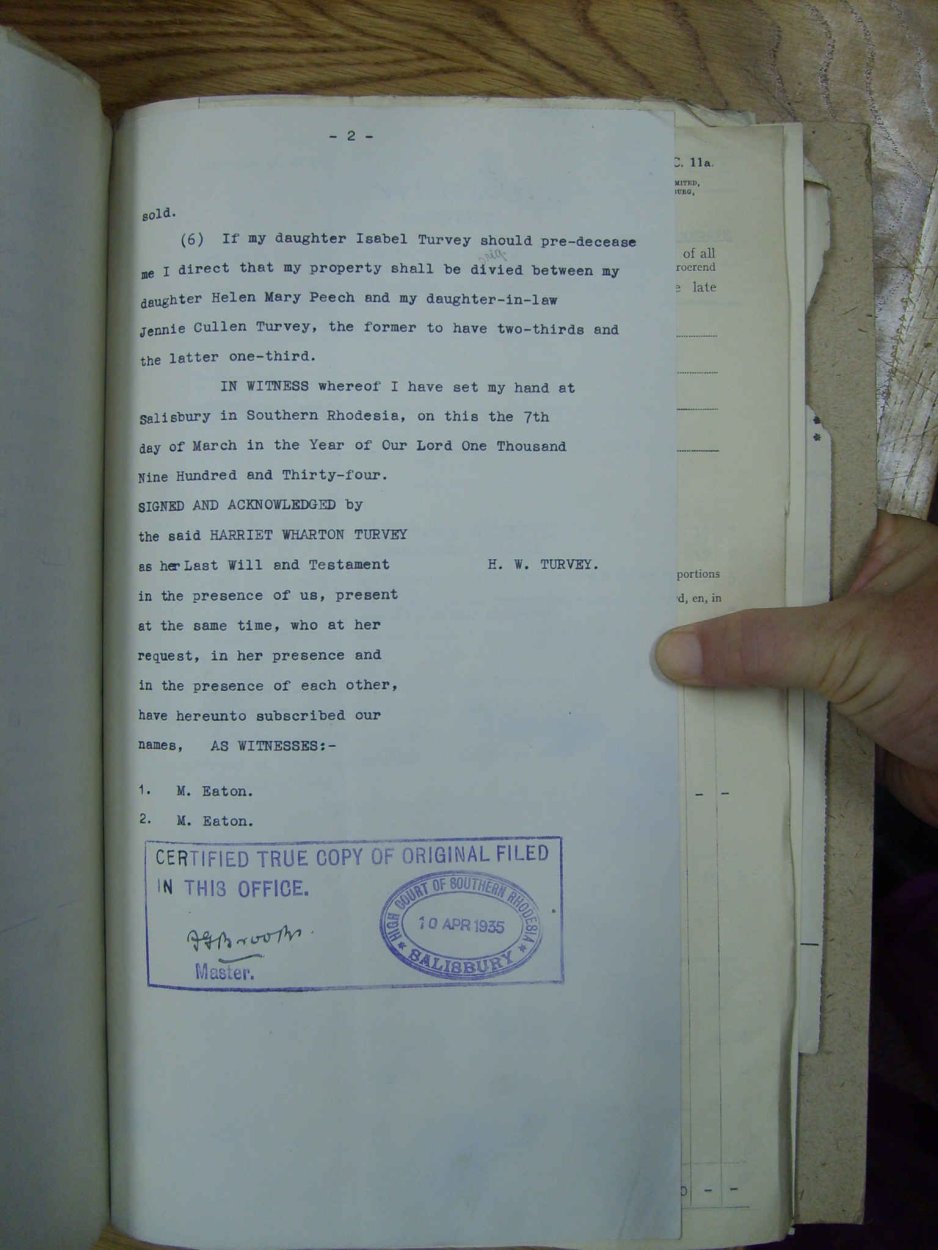 - 2 -
sold.
(6) If my daughter Isabel Turvey should pre-decease
me I direct that my property shall be divied between my
sic
daughter Helen Mary Peech and my daughter-in-law
Jennie Cullen Turvey, the former to have two-thirds and
the latter one-third.
IN WITNESS whereof I have set my hand at
Salisbury in Southern Rhodesia, on this the 7th
day of March in the Year of Our Lord One Thousand
Nine Hundred and Thirty-four.
SIGNED AND ACKNOWLEDGED by
the said HARRIET WHARTON TURVEY
as her Last Will and Testament H. W. TURVEY.
in the presence of us, present
at the same time, who at her
request, in her presence and
in the presence of each other,
have hereunto subscribed our
names, AS WITNESSES:-
1. M. Eaton.
2. M. Eaton.
CERTIFIED TRUE COPY OF ORIGINAL FILED
IN THIS OFFICE.
Master.
HIGH COURT OF SOUTHERN RHODESIA
10 APR 1935
* SALISBURY *
C. 11a.
of all
late
portions
en, in